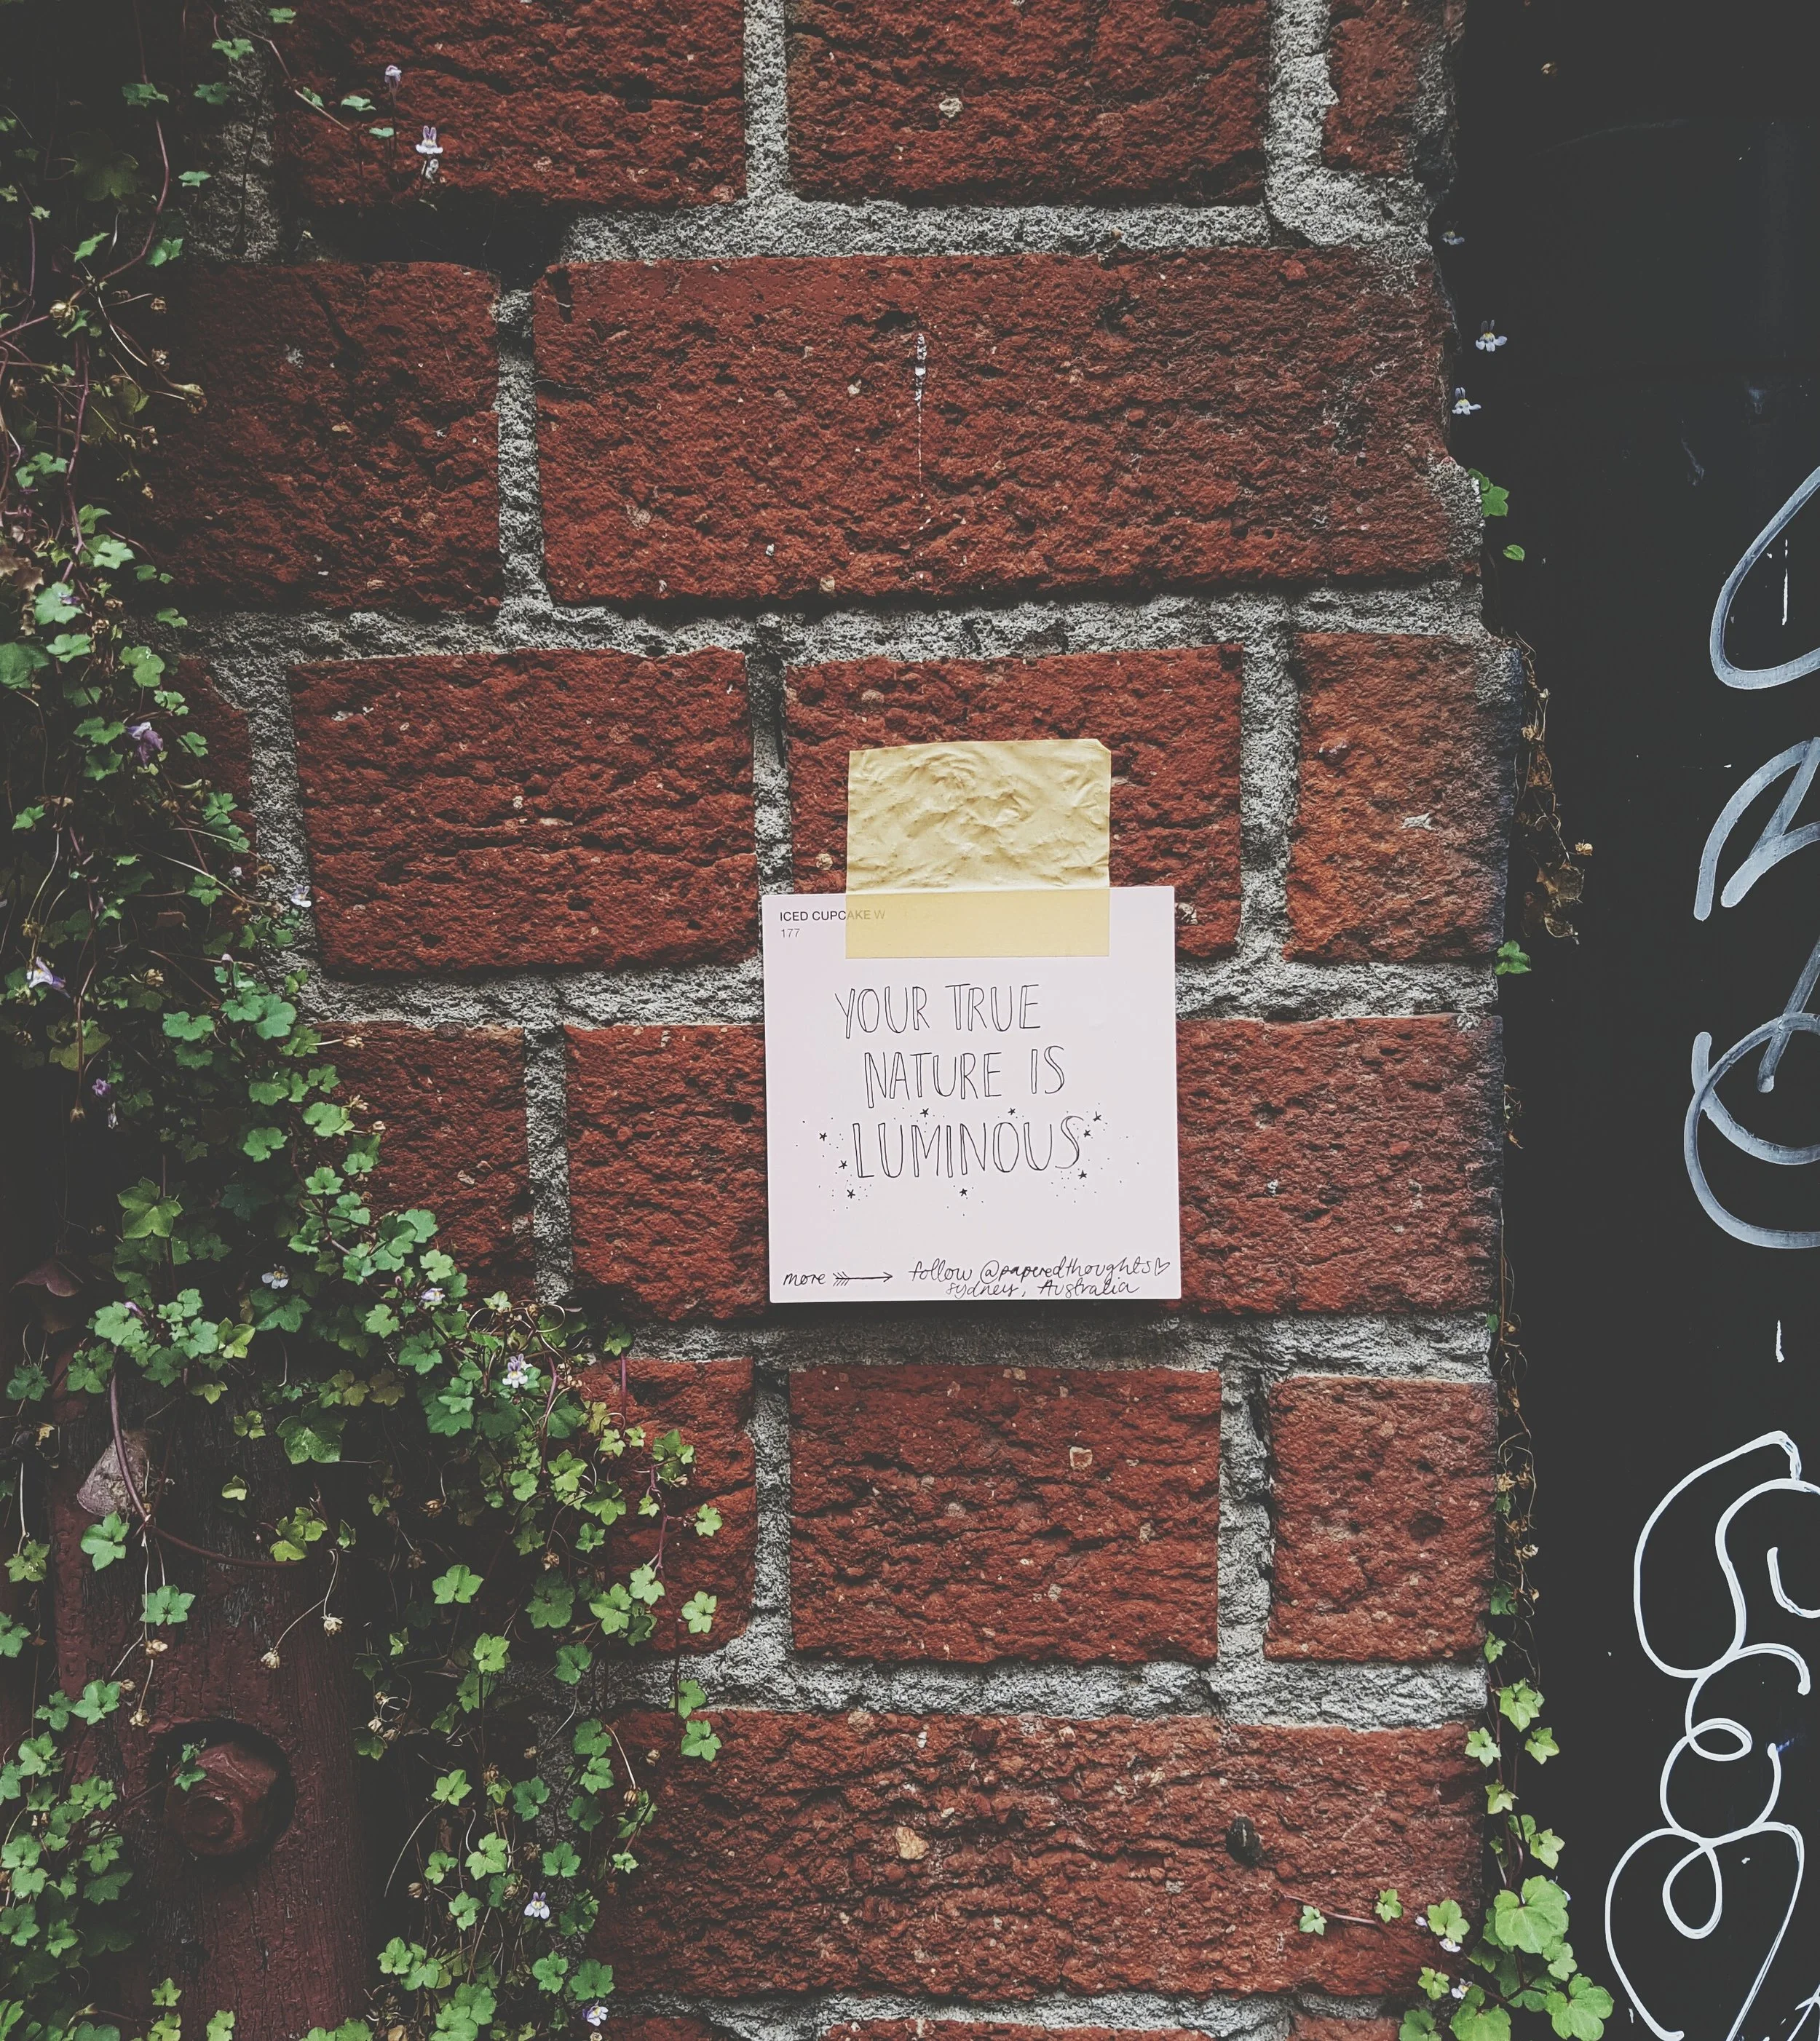 ICED CUPCAKE W
177
YOUR TRUE
NATURE IS
LUMINOUS
more follow @paperedthoughts♡
sydney, Australia